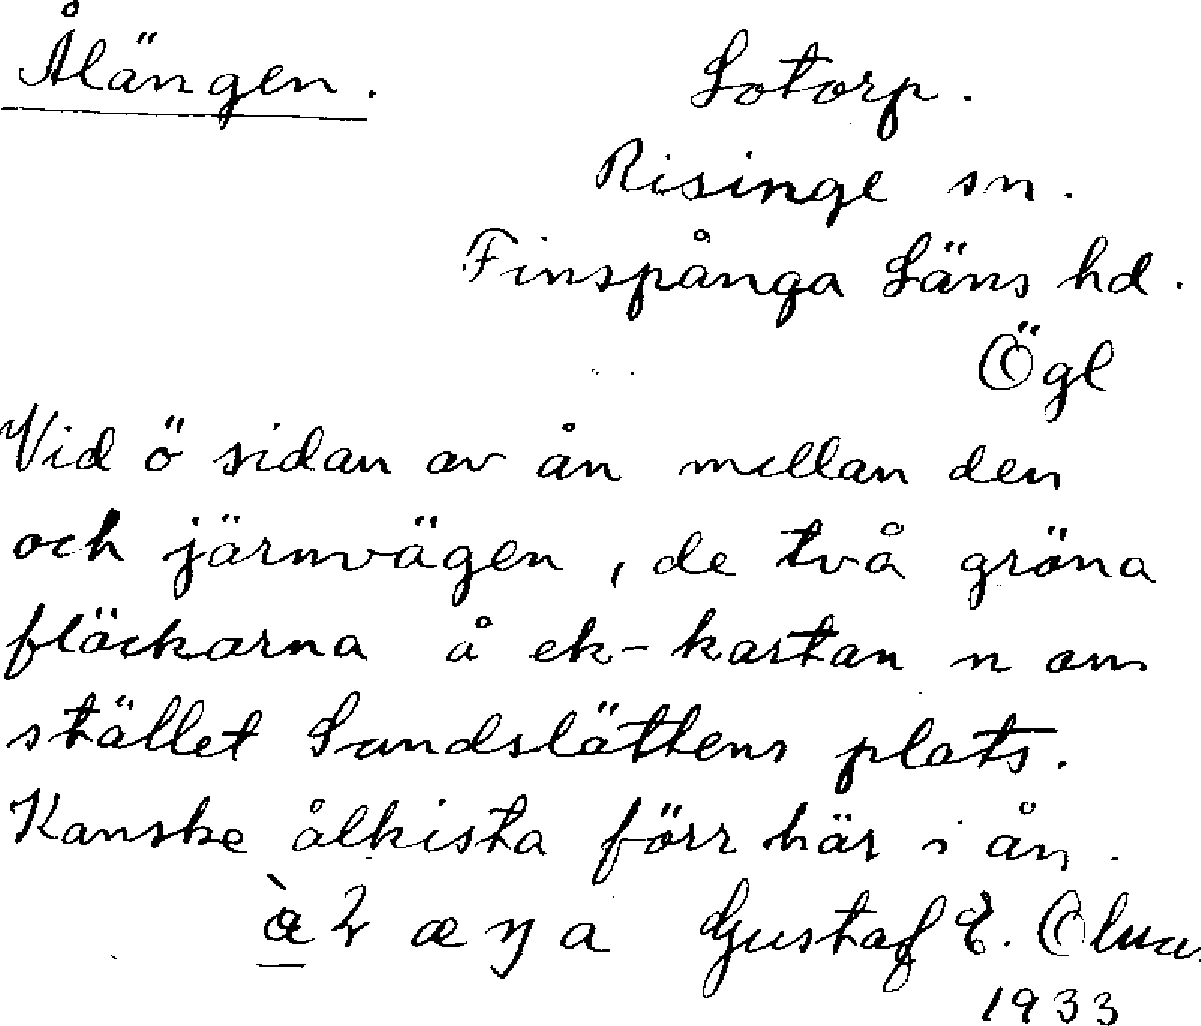 Ålängen.
Lotorp.
Risinge sn.
Finspånga Läns hd.
Ögl
Vid ö sidan av ån mellan den
och järnvägen, de två gröna
fläckarna å ek-kartan n om
stället Sandslättens plats.
Kanske ålkista förr här i ån.
Gustaf E.
1933